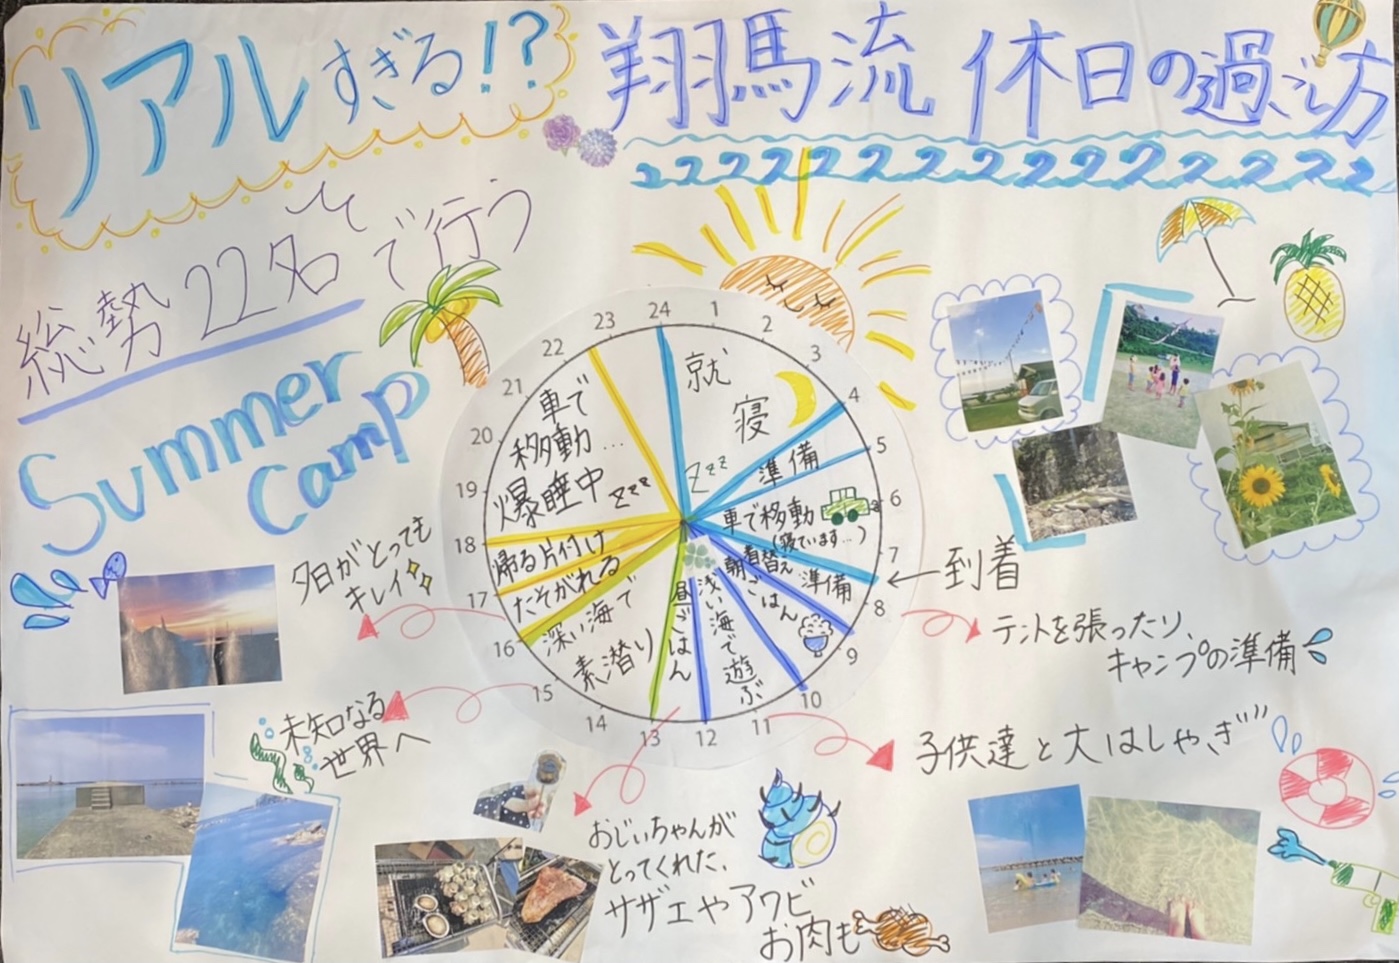 リアルすぎる!?
翔馬流 休日の過ごし方
総勢22名で行う
Summer
Camp
24
1
2
3
4
5
6
7
8
9
10
11
12
13
14
15
16
17
18
19
20
21
22
23
就
寝
zzz
準備
車で移動
(寝ています…)
着替え
準備
朝ごはん
浅い海で遊ぶ
昼ごはん
深い海で
素潜り
たそがれる
帰る片付け
車で
移動…
爆睡中
zzz
到着
テントを張ったり、
キャンプの準備
子供達と大はしゃぎ
おじいちゃんが
とってくれた、
サザエやアワビ
お肉も
未知なる
世界へ
夕日がとっても
キレイ